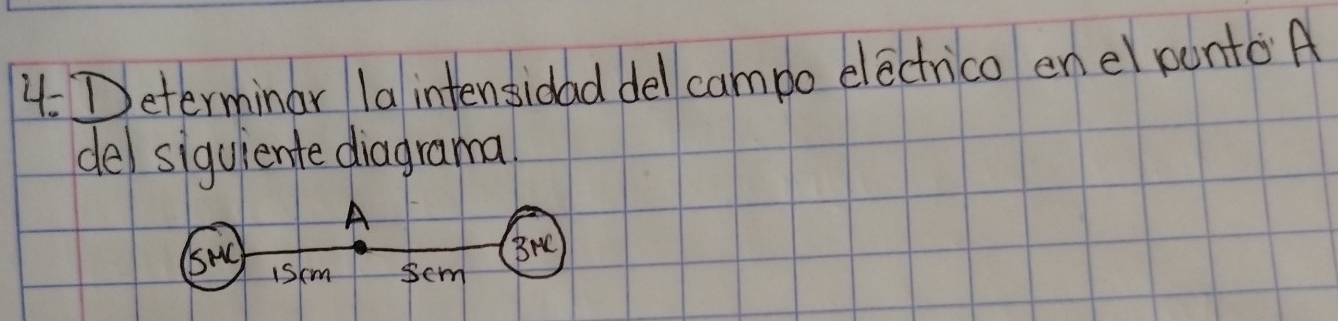 4.- Determinar la intensidad del campo eléctrico en el punto A
del siguiente diagrama.
A
5MC 15cm 5cm 3MC